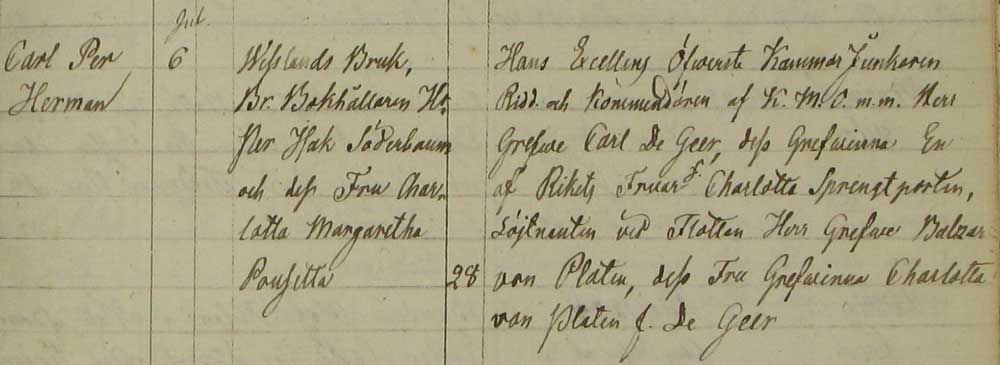 Jul.
Carl Per
Herman
6
Wesslands Bruk,
Br. Bokhållaren Hr.
Per Isak Söderbaum
och dess Fru Char-
lotta Margaretha
Pousetta
28
Hans Excellens Öfwerste Kammar Junkaren
Ridd. och Kommendören af K. M. O. m. m. Herr
Grefwe Carl De Geer, dess Grefwinna En
af Rikets Fruar f. Charlotta Sprengtporten,
Löjtnanten wid Flottan Herr Grefwe Baltzar
von Platen, dess Fru Grefwinna Charlotta
von Platen f. De Geer